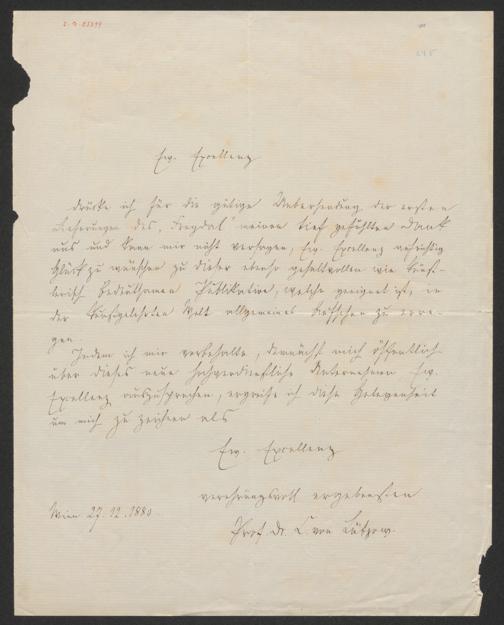 Ew. Excellenz
drücke ich für die gütige Uebersendung der ersten
Lieferungen des „Freydal“ meinen tief gefühlten Dank
aus und kann mir nicht versagen, Ew. Excellenz aufrichtig
Glück zu wünschen zu dieser ebenso gehaltvollen wie künst-
lerisch bedeutsamen Publikation, welche geeignet ist, in
der kunstgelehrten Welt allgemeines Aufsehen zu erre-
gen.
Indem ich mir vorbehalte, demnächst mich öffentlich
über dieses neue hochverdienstliche Unternehmen Ew.
Excellenz auszusprechen, ergreife ich diese Gelegenheit
um mich zu zeichnen als
Ew. Excellenz
verehrungsvoll ergebensten
Wien 27.12.1880.
Prof. Dr. C. von Lützow.